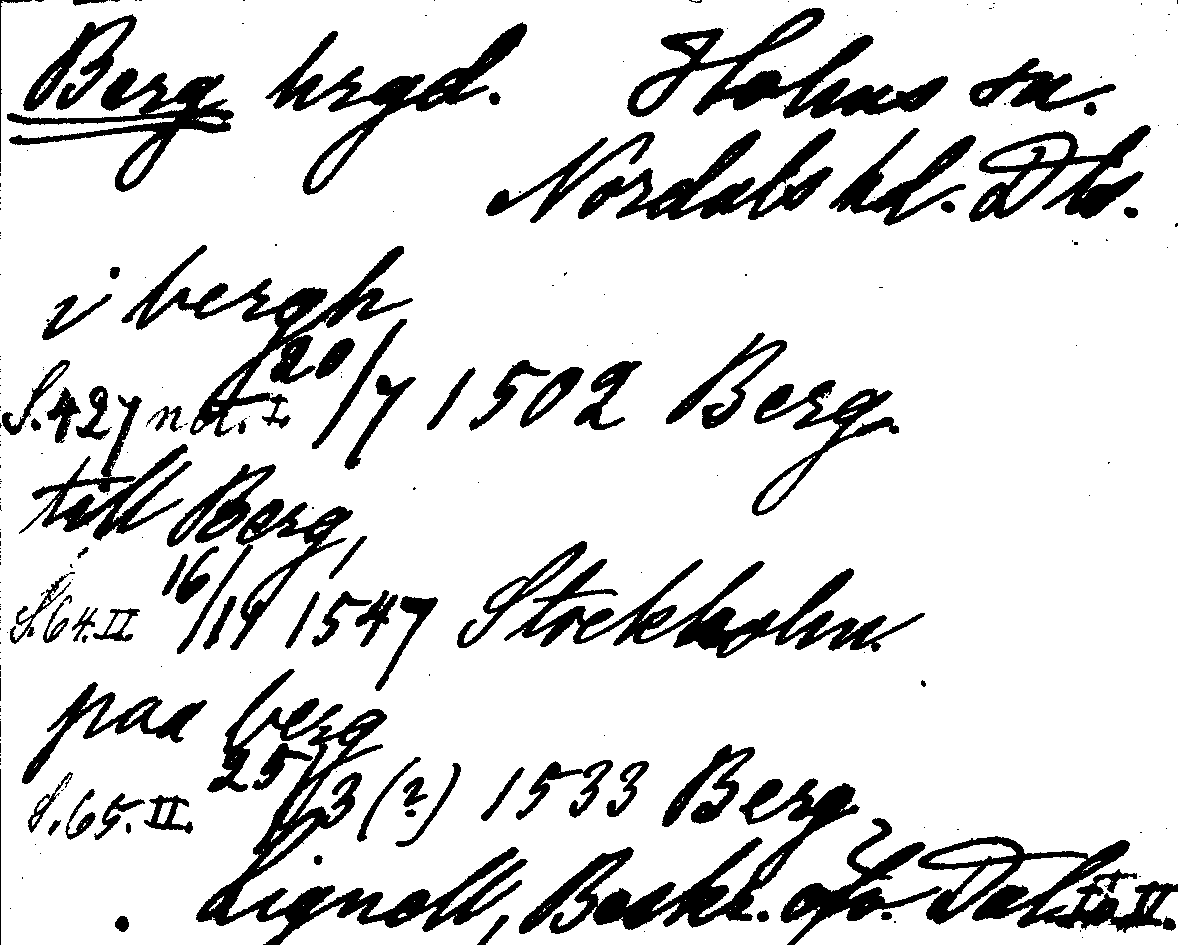 Berg hrgd. Holms sn.
Nordals hd. Dls.
i bergh
S. 427 not. I. 20/7 1502 Berg.
till Berg,
S. 64. II. 16/11 1547 Stockholm.
paa berg
S. 65. II. 25/3 (?) 1533 Berg
Lignell, Beskr. öfv. Dal I, II.